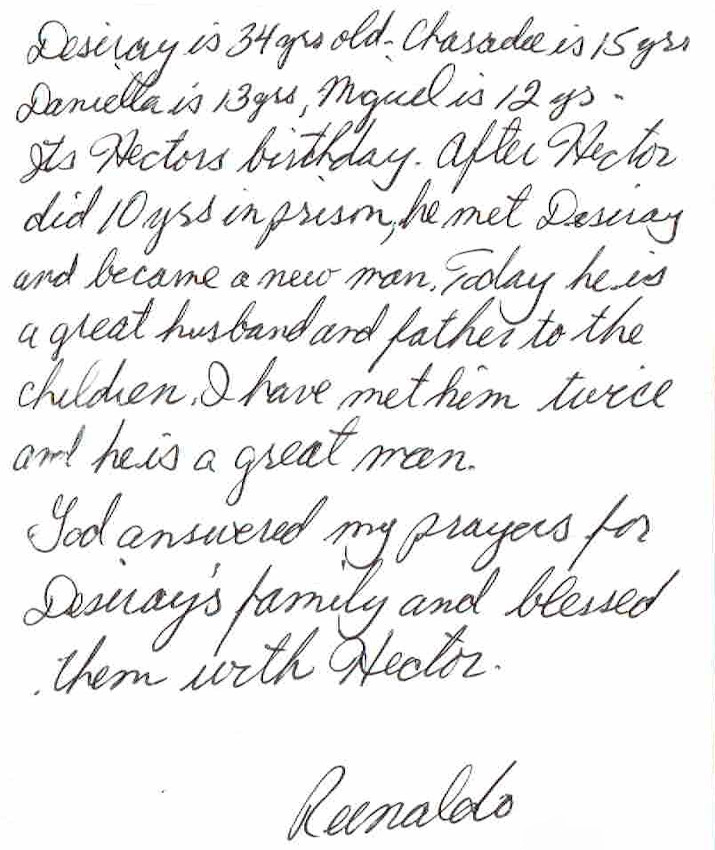 Desiray is 34 yrs old - Charadee is 15 yrs
Daniella is 13 yrs, Miguel is 12 ys -
Its Hectors birthday. After Hector
did 10 yrs in prison, he met Desiray
and became a new man. Today he is
a great husband and father to the
children. I have met him twice
and he is a great man.
God answered my prayers for
Desiray's family and blessed
them with Hector.
Reenaldo